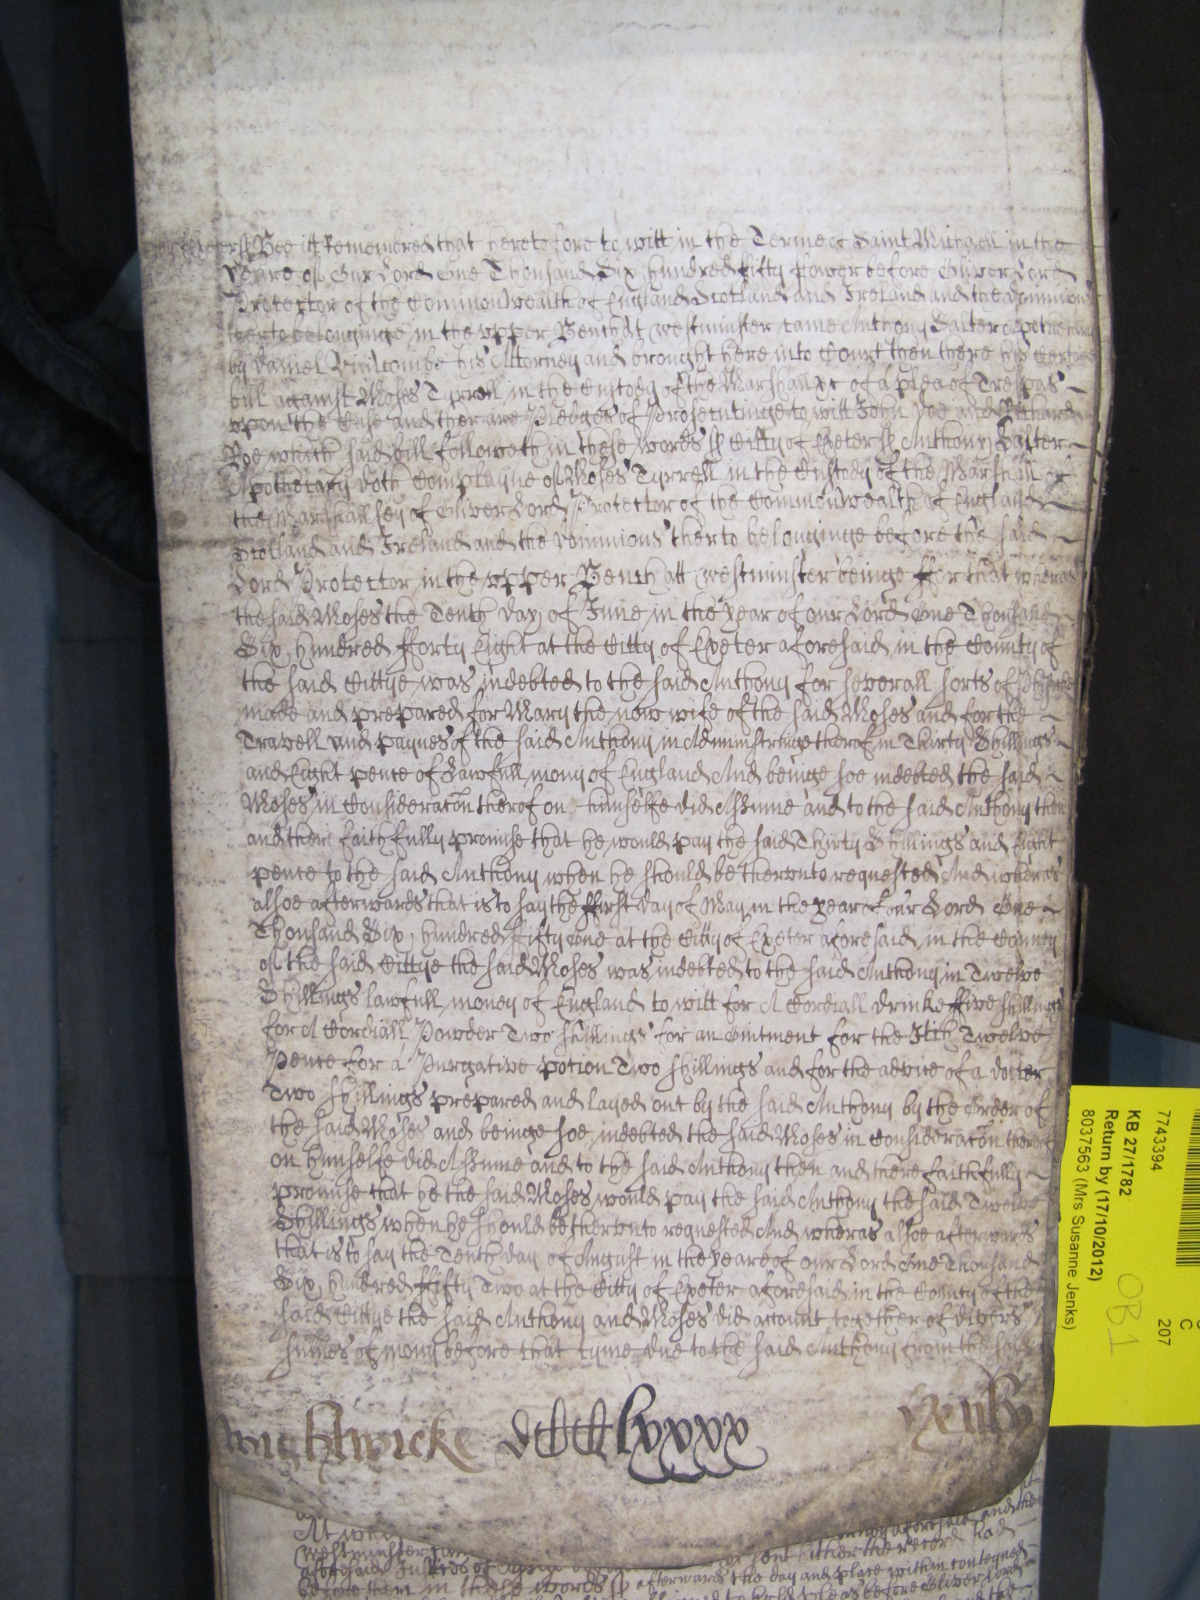 Bee itt Remembred that heretofore to witt in the Terme of Saint Michaell in the
Yeare of Our Lord One Thousand Six hundred fifty fower before Oliver Lord
Protector of the Commonwealth of England Scotland and Ireland and the dominions
therto belonginge in the vpper Bench att westminster came Anthony Salter Apothecary
by Daniel his Attorney and brought here into Court then there his Certeine
bill against Moses Tyrrell in the Custody of the Marshall &c of a plea of Trespas
vpon the Case and there are Pledges of Prosecutinge to witt John Doe and Richard
Roe which said bill followeth in these words ss Citty of Exeter ss Anthony Salter
Apothecary doth Complayne of Moses Tyrrell in the Custody of the Marshall of
the Marshallsey of Oliver Lord Protector of the Commonwealth of England
Scotland and Ireland and the dominions therto belonginge before the said
Lord Protector in the vpper Bench att westminster beinge ffor that wheras
the said Moses the Tenth day of June in the year of our Lord One Thousand
Six hundred fforty Eight at the Citty of Exeter aforesaid in the County of
the said Cittye was indebted to the said Anthony for severall sorts of
made and prepared for Mary the now wife of the said Moses and for the
Travell and paynes of the said Anthony in Administringe therof in Thirty Shillings
and Eight pence of Lawfull mony of England And beinge soe indebted the said
Moses in Consideracon therof on himselfe did Assume and to the said Anthony then
and there faithfully promise that he would pay the said Thirty Shillings and Eight
pence to the said Anthony when he should be therunto requested And wheras
alsoe afterwards that is to say the ffirst day of May in the year of our Lord One
Thousand Six hundred fifty One at the Citty of Exeter aforesaid in the County
of the said Cittye the said Moses was indebted to the said Anthony in Twelve
Shillings lawfull money of England to witt for A Cordiall drinke ffive shillings
for A Cordiall Powder Two shillings for an Ointment for the Itch Twelve
Pence for a Purgative potion Two shillings and for the advice of a docter
Two shillings prepared and layed out by the said Anthony by the Order of
the said Moses and beinge soe indebted the said Moses in Consideracon therof
on himselfe did Assume and to the said Anthony then and there faithfully
promise that he the said Moses would pay the said Anthony the said Twelve
Shillings when he should be therunto requested And wheras alsoe afterwards
that is to say the Tenth day of August in the yeare of our Lord One Thousand
Six hundred ffifty Two at the Citty of Exeter aforesaid in the County of the
said Cittye the said Anthony and Moses did account together of divers
summes of mony before that tyme due to the said Anthony from the said
wightwicke lxxxx
At
westminster
aforesaid
before them in these words ss afterwards the day and place within conteyned
7743394
KB 27/1782
Return by (17/10/2012)
8037563 (Mrs Susanne Jenks)
OB1
C
207